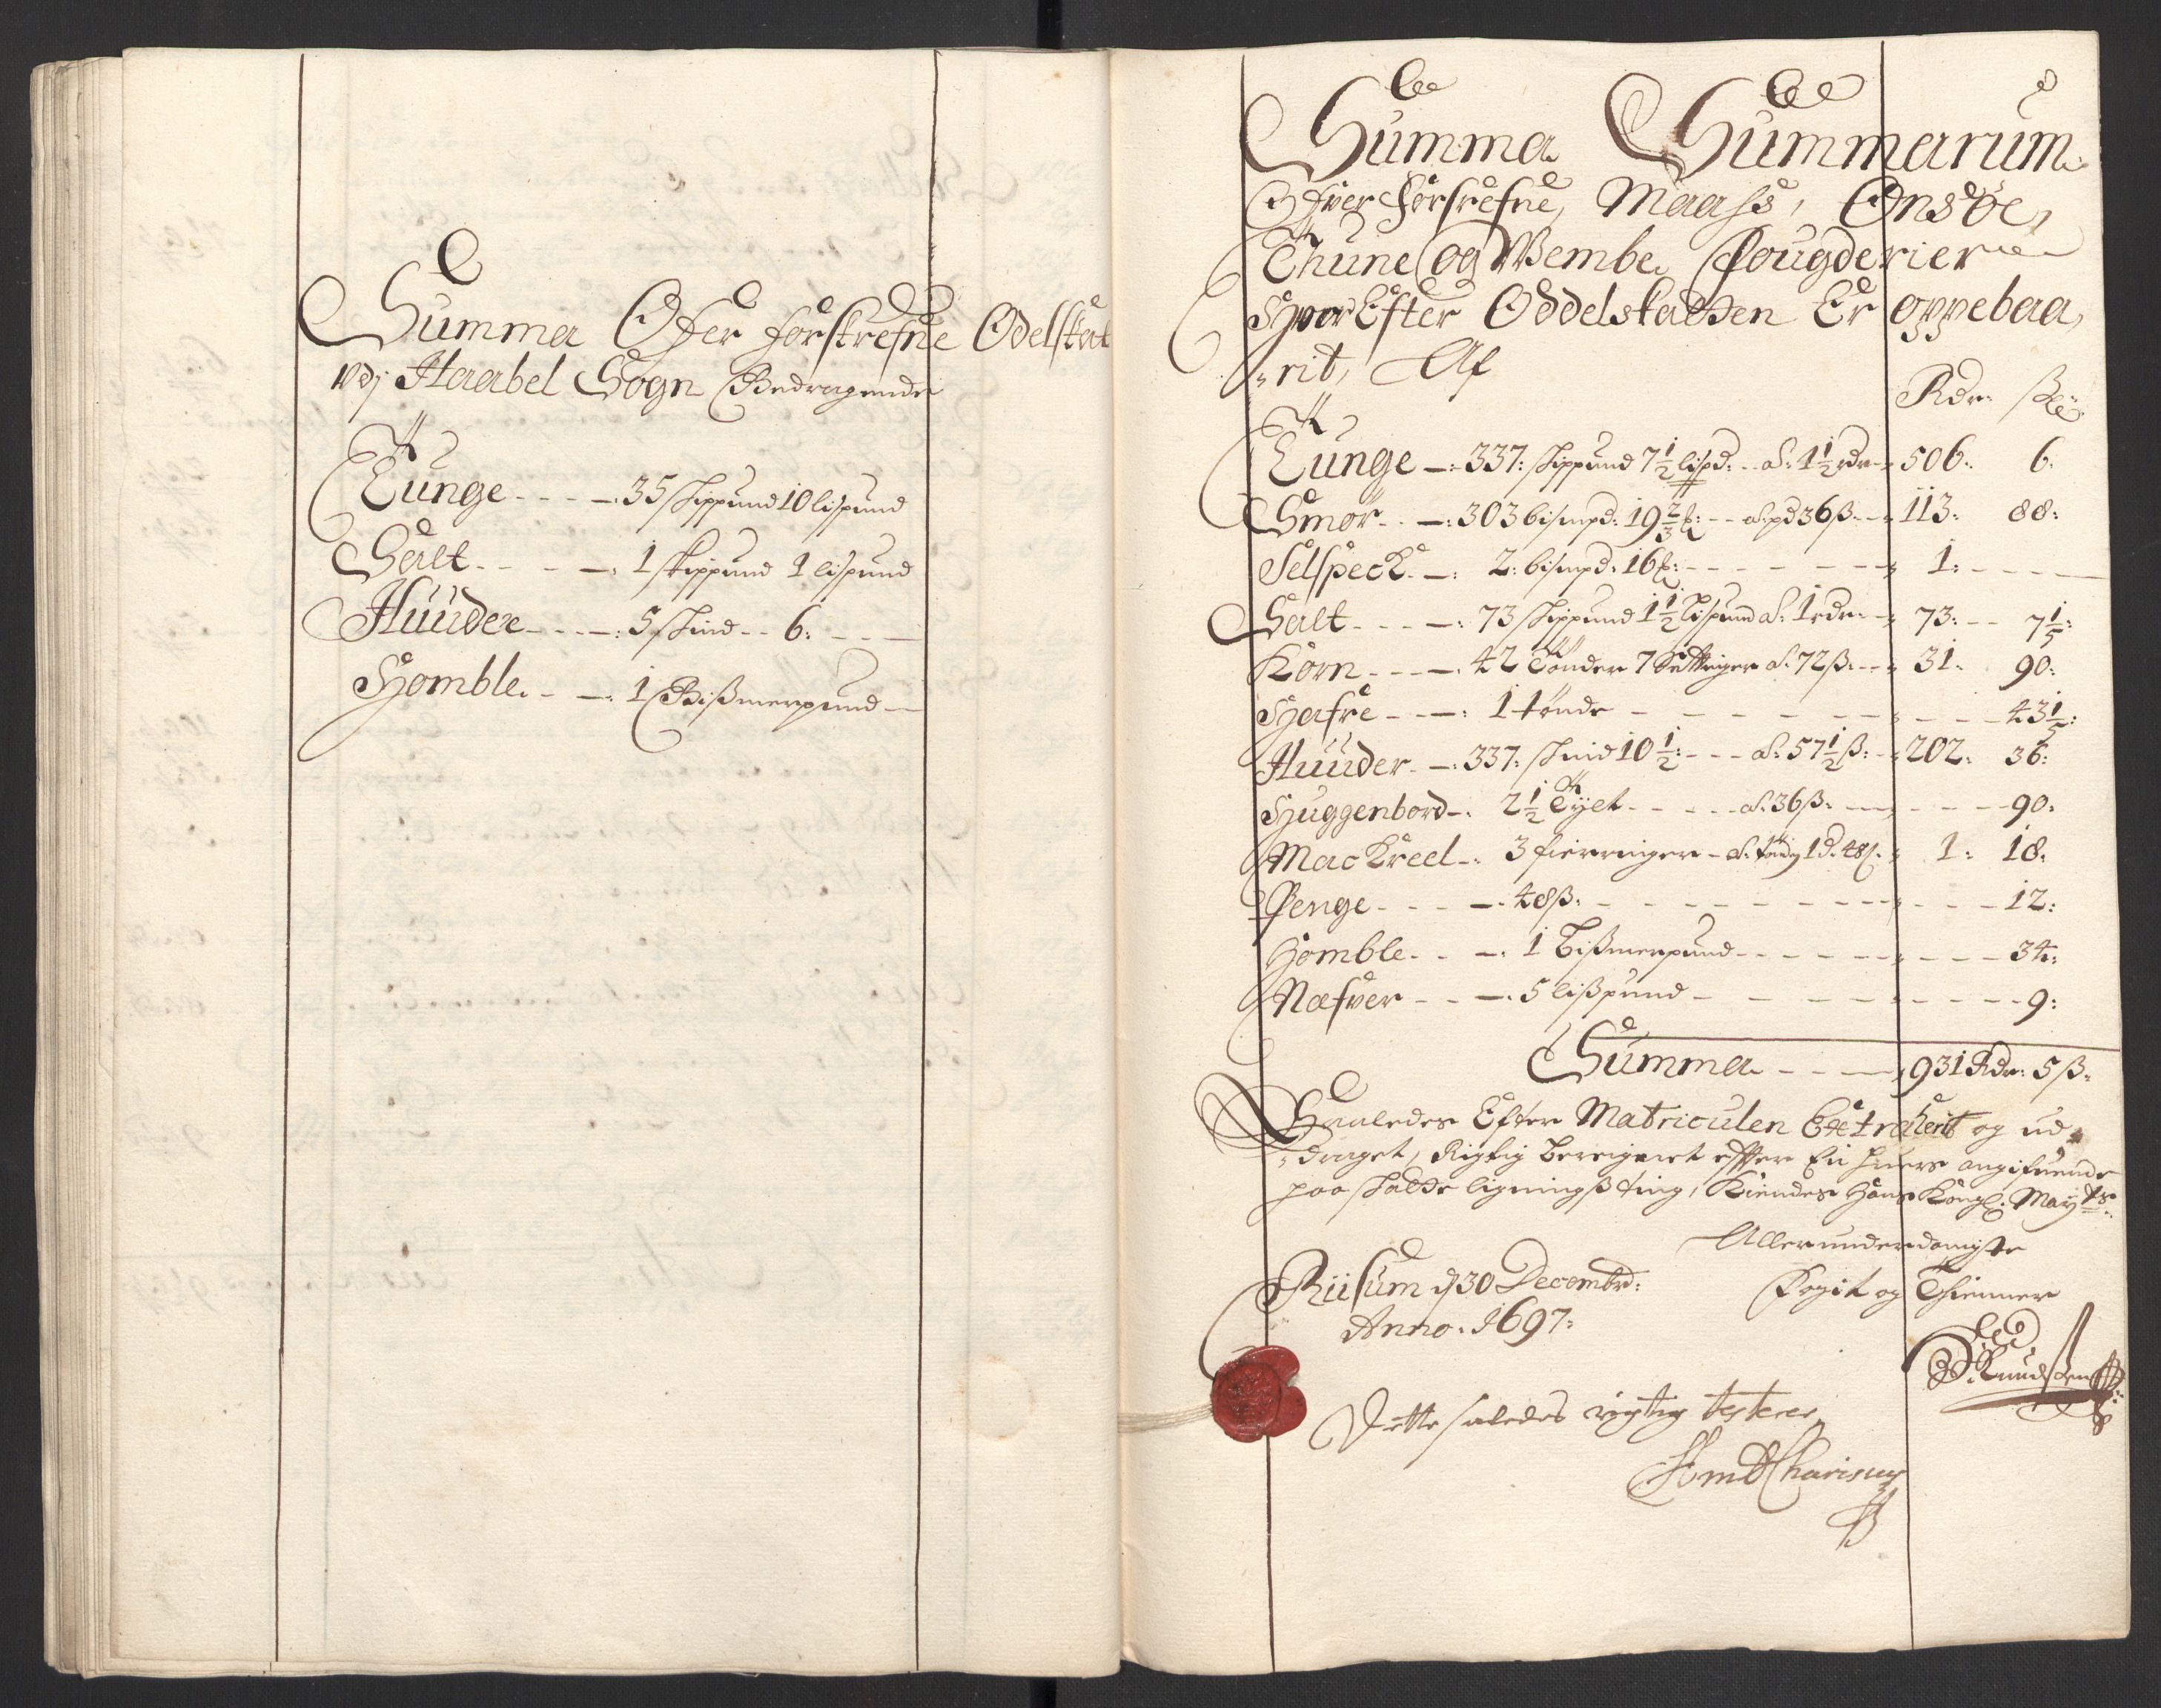 Summa Ofer forskrefne Odelskat
Vdj Haabel Sogn Bedragende
Tunge - - - -: 35 skippund 10 lispund
Salt - - - -: 1 skippund 1 lispund
Huuder - - - -: 5 skind - - 6:
Homble - - -: 1 Bißmerpund
Summa Summarum
Ofver forsrefne, Maass, Onsöe,
Thune og Wembe Fougderier
Hvor Efter Oddelskatten Er oppebaa,
rit, Af
Rdr: ß
Tunge -: 337: skippund 7½ lispd: - à: 1½ rdr - 506: 6:
Smör - -: 303 bismpd: 19⅔ - - à pd 36 ß - - 113: 88:
Selspeck - -: 2: bismpd: 16 - - - - 1: - - -
Salt - - - -: 73 skippund 1½ lispund à: 1 rdr - 73: - - 7⅕:
Korn - - - -: 42 Tönder 7 Setttinger à: 72 ß: - - 31: 90:
Hafre - - -: 1 tönde - - - - - - 43⅕:
Huuder - -: 337: skind 10½: - - - à: 57½ ß: - 202: 36:
Huggenbord -: 2½ Tylt - - - - à: 36 ß: - - - 90:
Mackreel - -: 3 fierringer - à: 1 d: 48 - 1: 18:
Penge - - - -: 48 ß: - - - - - - 12:
Homble - - -: 1 Bißmerpund - - - - - - 34:
Næfver - - -: 5 lißpund - - - - - - 9:
Summa - - - 931 Rdr: 5 ß:
Saaledes Efter Matriculen Extraherit og ud,
draget, Rigtig bereignet efter En hvers angifvende
paa skatte ligningß ting, Kiendes Hans Kongl: Mayts
Allerunderdanigste
Riisum d 30 Decembr: Fogit og Thienner
Anno: 1697:
Knudsen
Dette saledes rigtig testerer